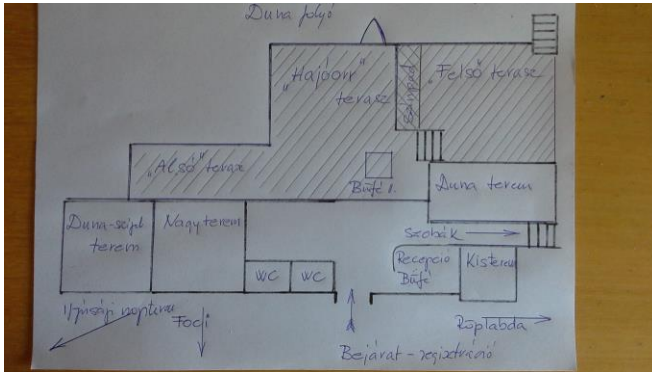 Duna folyó
"Hajóorr"
terasz
Színpad
"Felső" terasz
"Alsó" terasz
Büfé 1.
Duna terem
Duna-szept
terem
Nagyterem
Szobák
WC
WC
Recepció
Büfé
Kisterem
Ifjúsági
Foci
Röplabda
Bejárat - regisztráció